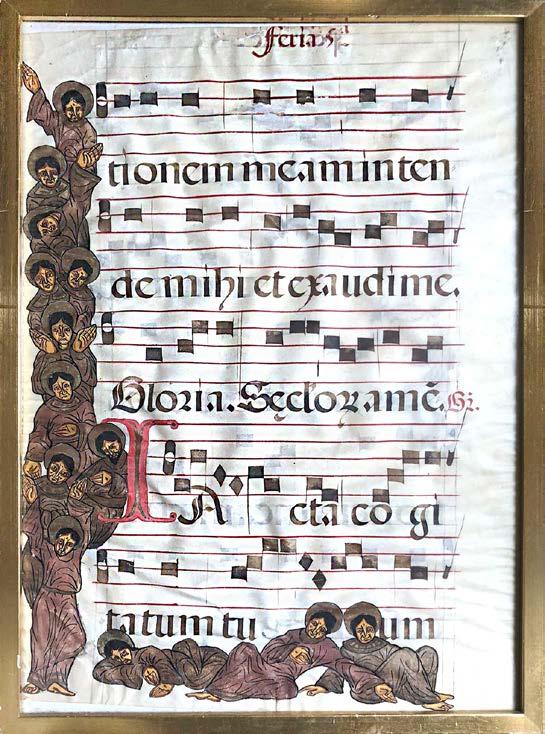 Feria 5ª
tionem meam inten
de mihi et exaudi me.
Gloria. Sęcloꝝ. amē. Gr.
IActa cogi
tatum tuum